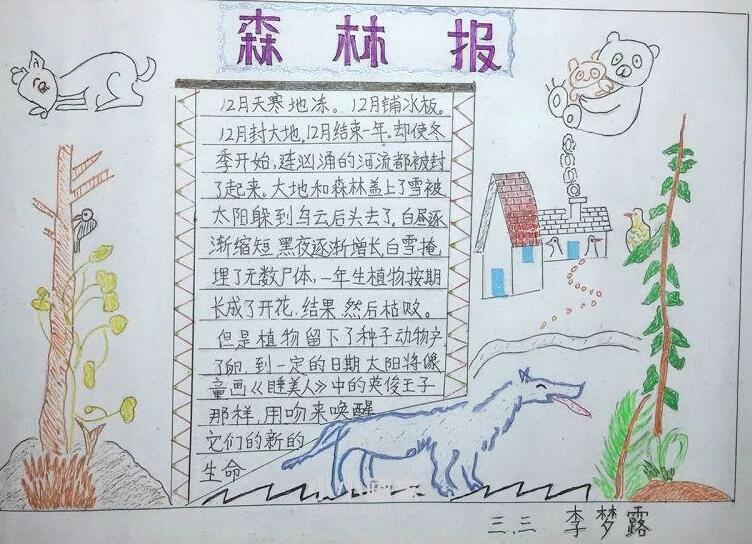 森林报
12月天寒地冻。12月铺冰板。
12月封大地.12月结束一年.却使冬
季开始,连汹涌的河流都被封
了起来。大地和森林盖上了雪被
太阳躲到乌云后头去了.白昼逐
渐缩短.黑夜逐渐增长.白雪掩
埋了无数尸体,一年生植物按期
长成了开花,结果.然后枯败。
但是植物留下了种子动物产
了卵.到一定的日期太阳将像
童画《睡美人》中的英俊王子
那样,用吻来唤醒
它们的新的
生命
三.三 李梦露